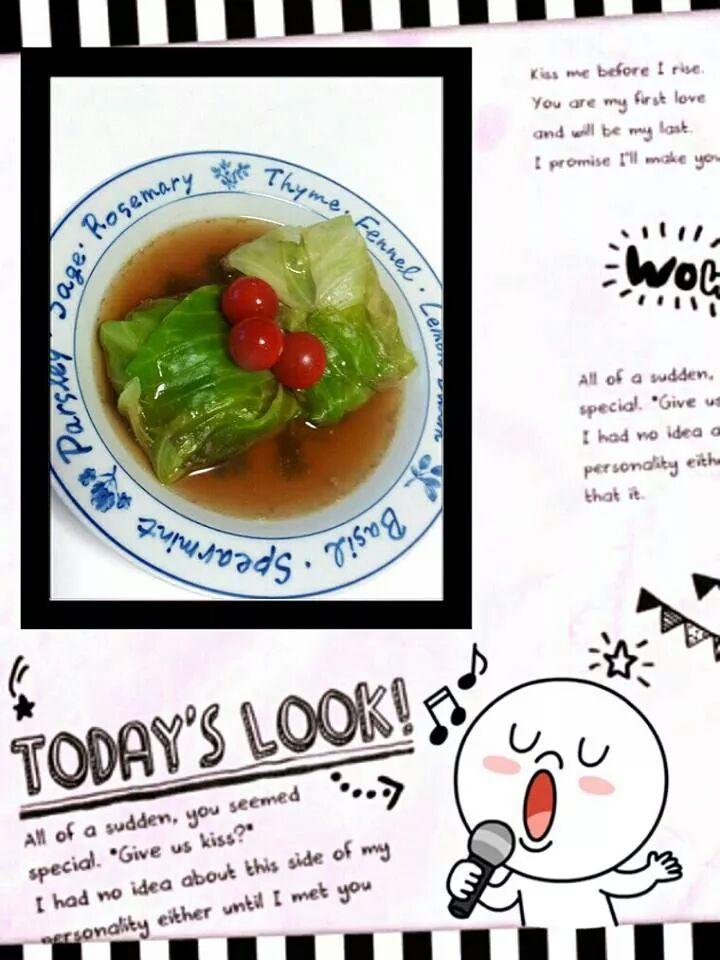 Kiss me before I rise.
You are my first love
and will be my last.
I promise I'll make you
Parsley · Sage · Rosemary
Thyme. Fennel. Lemon
Basil. Spearmint
All of a sudden,
special. "Give us
I had no idea a
personality eith
that it.
TODAY'S LOOK!
All of a sudden, you seemed
special. "Give us kiss?"
I had no idea about this side of my
personality either until I met you